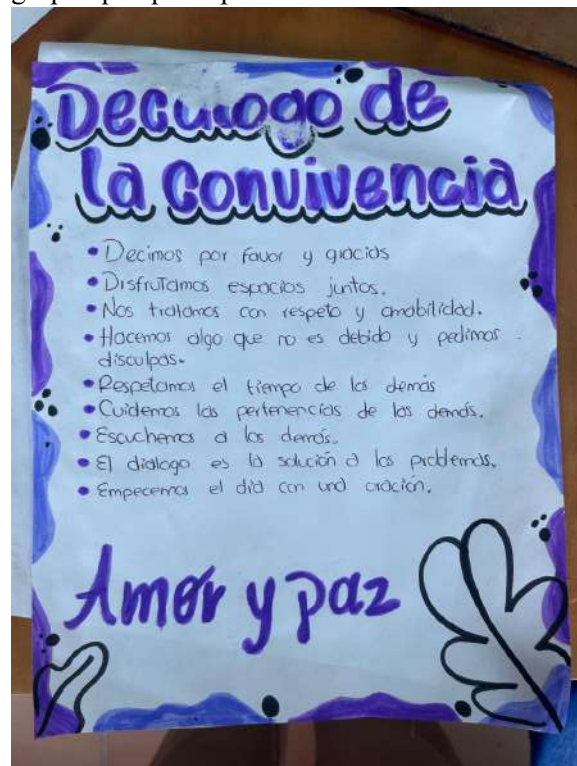 Decálogo de
la convivencia
• Decimos por favor y gracias
• Disfrutamos espacios juntos.
• Nos tratamos con respeto y amabilidad.
• Hacemos algo que no es debido y pedimos
disculpas.
• Respetamos el tiempo de los demás
• Cuidemos las pertenencias de los demás.
• Escuchemos a los demás.
• El dialogo es la solución a los problemas.
• Empecemos el día con una oración.
Amor y paz